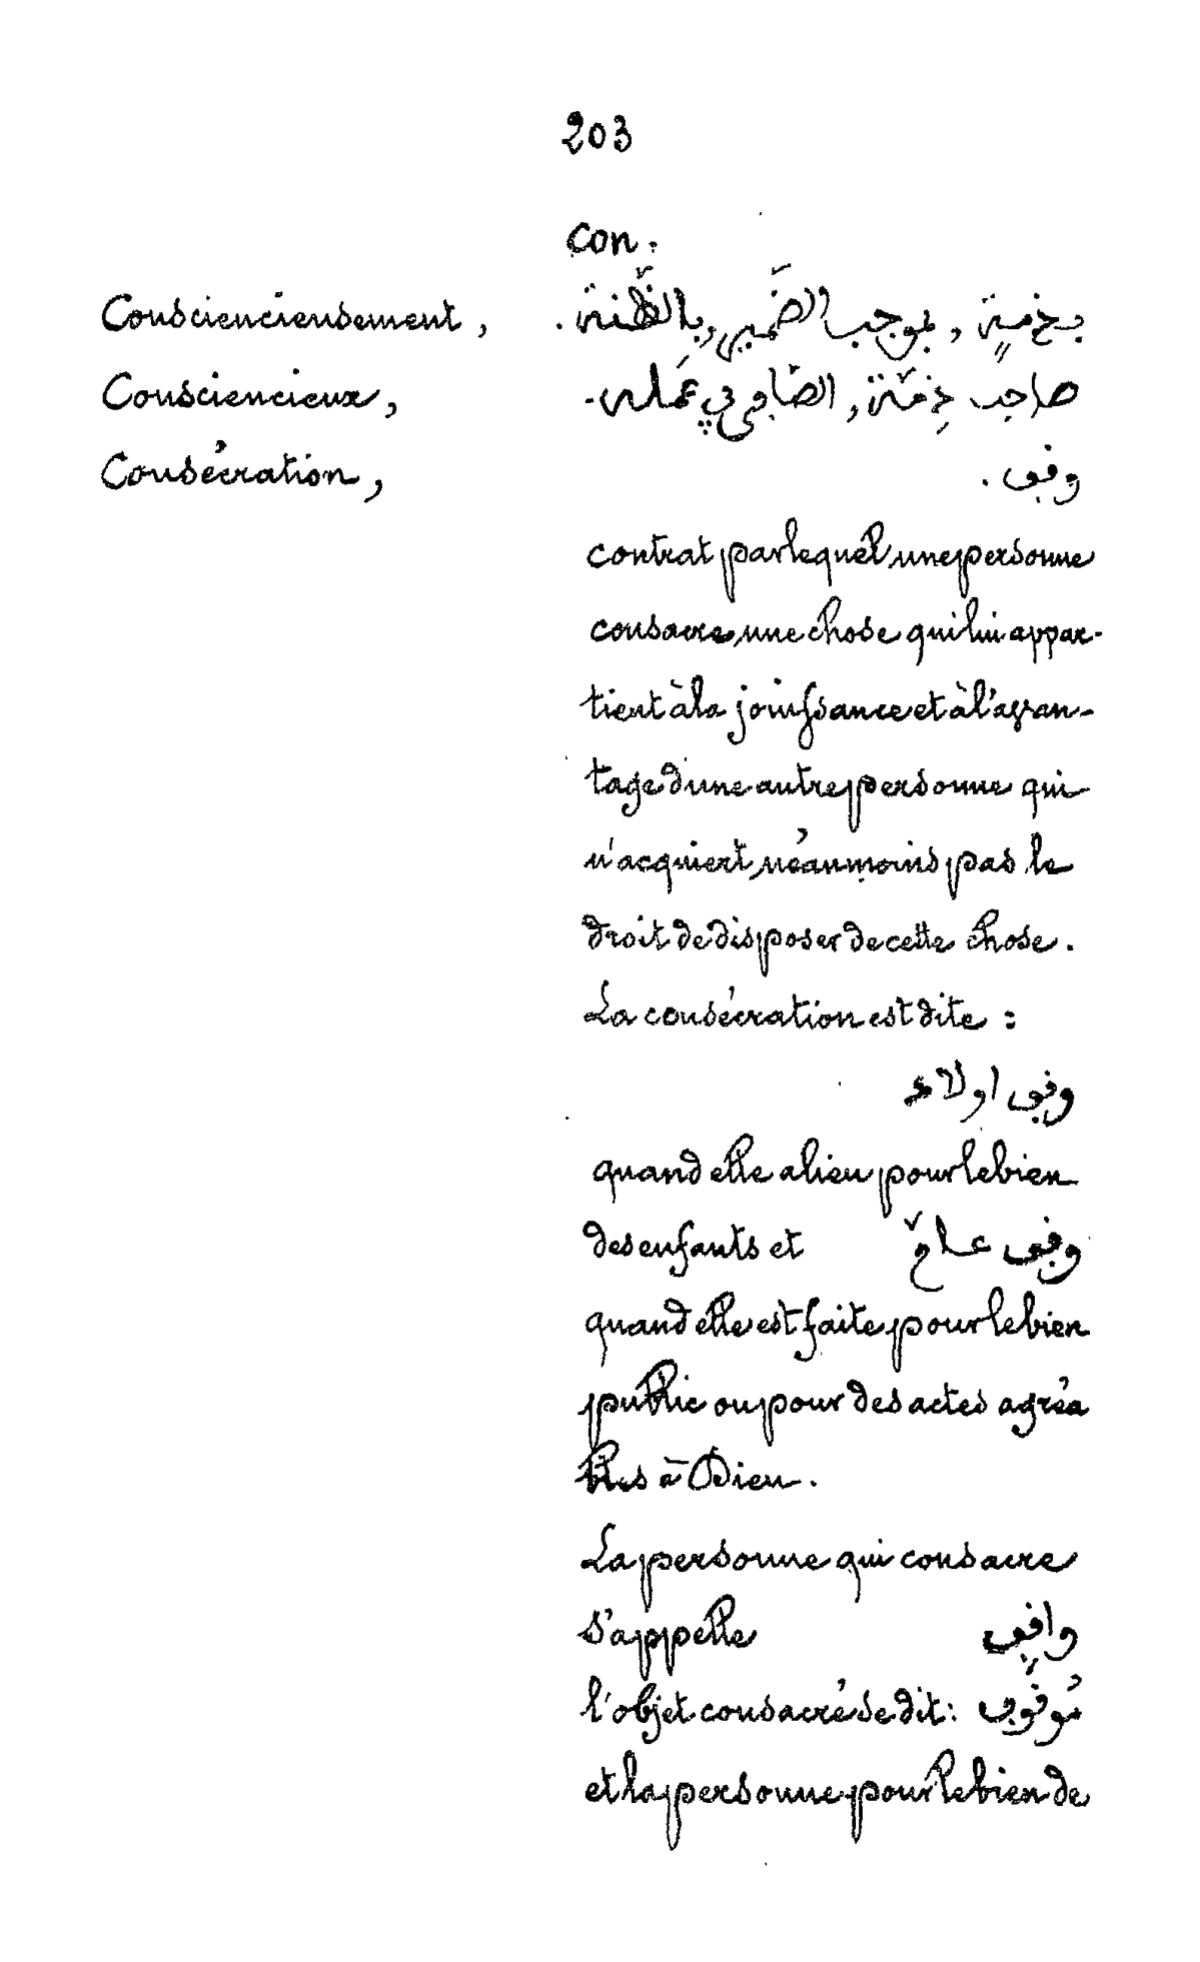 203
con.
Consciencieusement, بذمّةٍ , بموجب الضّمير, بالظّنة.
Consciencieux, صاحب ذِمّة, الصّافي في عَمَله.
Consécration, وقف.
contrat par lequel une personne
consacre une chose qui lui appar-
tient à la jouissance et à l'avan-
tage d'une autre personne qui
n'acquiert néanmoins pas le
droit de disposer de cette chose.
La consécration est dite :
وقف اولاد
quand elle a lieu pour le bien
des enfants et وقف عامّ
quand elle est faite pour le bien
public ou pour des actes agréa
bles à Dieu.
La personne qui consacre
s'appelle واقِف
l'objet consacré se dit: مُوقُوف
et la personne pour le bien de